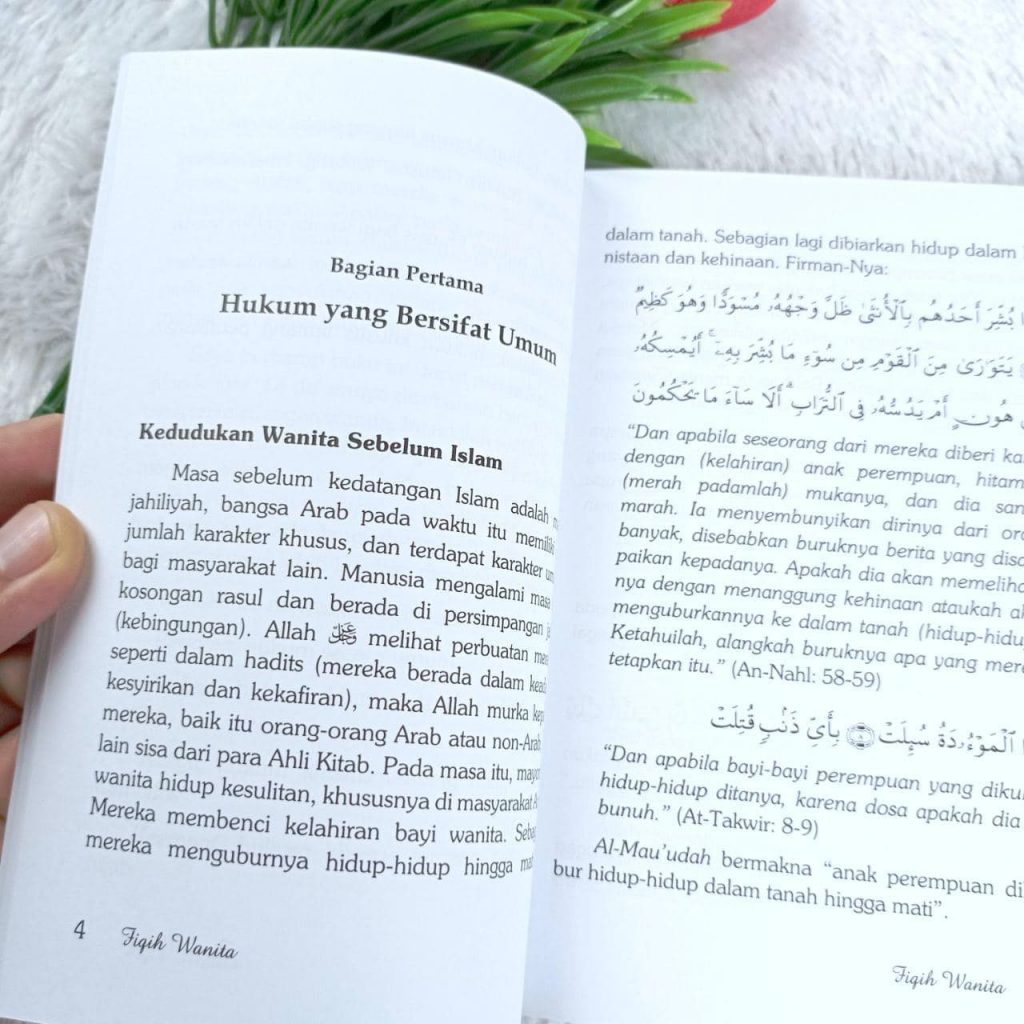 Bagian Pertama
Hukum yang Bersifat Umum
Kedudukan Wanita Sebelum Islam
Masa sebelum kedatangan Islam adalah
jahiliyah, bangsa Arab pada waktu itu memiliki
jumlah karakter khusus, dan terdapat karakter
bagi masyarakat lain. Manusia mengalami masa
kosongan rasul dan berada di persimpangan
(kebingungan). Allah ﷻ melihat perbuatan
seperti dalam hadits (mereka berada dalam
kesyirikan dan kekafiran), maka Allah murka
mereka, baik itu orang-orang Arab atau non-Arab
lain sisa dari para Ahli Kitab. Pada masa itu,
wanita hidup kesulitan, khususnya di masyarakat
Mereka membenci kelahiran bayi wanita.
mereka menguburnya hidup-hidup hingga
4 Fiqih Wanita
dalam tanah. Sebagian lagi dibiarkan hidup dalam
nistaan dan kehinaan. Firman-Nya:
بُشِّرَ أَحَدُهُم بِٱلْأُنثَىٰ ظَلَّ وَجْهُهُۥ مُسْوَدًّا وَهُوَ كَظِيمٌ
يَتَوَٰرَىٰ مِنَ ٱلْقَوْمِ مِن سُوٓءِ مَا بُشِّرَ بِهِۦٓ ۚ أَيُمْسِكُهُۥ
هُونٍ أَمْ يَدُسُّهُۥ فِى ٱلتُّرَابِ ۗ أَلَا سَآءَ مَا يَحْكُمُونَ
“Dan apabila seseorang dari mereka diberi
dengan (kelahiran) anak perempuan,
(merah padamlah) mukanya, dan dia
marah. Ia menyembunyikan dirinya dari
banyak, disebabkan buruknya berita yang
paikan kepadanya. Apakah dia akan
nya dengan menanggung kehinaan ataukah
menguburkannya ke dalam tanah
Ketahuilah, alangkah buruknya apa yang
tetapkan itu.” (An-Nahl: 58-59)
ٱلْمَوْءُۥدَةُ سُئِلَتْ ٨ بِأَىِّ ذَنۢبٍ قُتِلَتْ
“Dan apabila bayi-bayi perempuan yang
hidup-hidup ditanya, karena dosa apakah dia
bunuh.” (At-Takwir: 8-9)
Al-Mau’udah bermakna “anak perempuan
bur hidup-hidup dalam tanah hingga mati”.
Fiqih Wanita